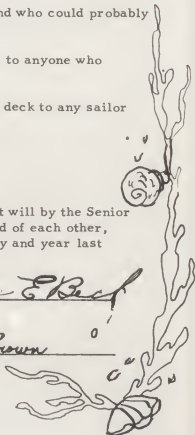 nd who could probably
to anyone who
deck to any sailor
t will by the Senior
d of each other,
y and year last
E Beach
rown